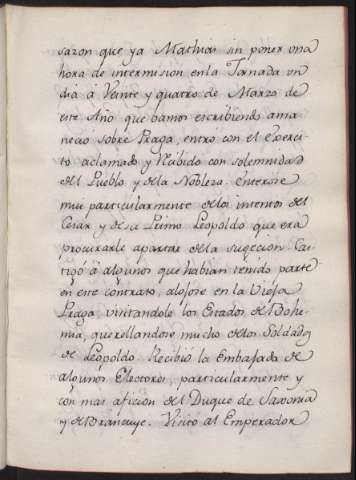 sazon que ya Mathias sin poner una
hora de intermision enla Jornada un
dia á Veinte y quatro de Marzo de
este Año que bamos escribiendo ama
necio sobre Praga, entró con el exerci-
to aclamado y Rĕcibido con solemnidad
del Pueblo y dela Nobleza. Enterose
mui particularmente delos intentos del
Cesar y de su Primo Leopoldo que era
procurarle apartar dela sugecion. Cas-
tigó á algunos que habian tenido parte
en este contrato, alojose en la Vieja
Praga, visitandole los Estados de Bohe-
mia, querellandose mucho delos Soldados
de Leopoldo. Recibio la Embajada de
algunos Electores, particularmente y
con mas aficion del Duque de Saxonia
y de Branduye. Visitó al Emperador